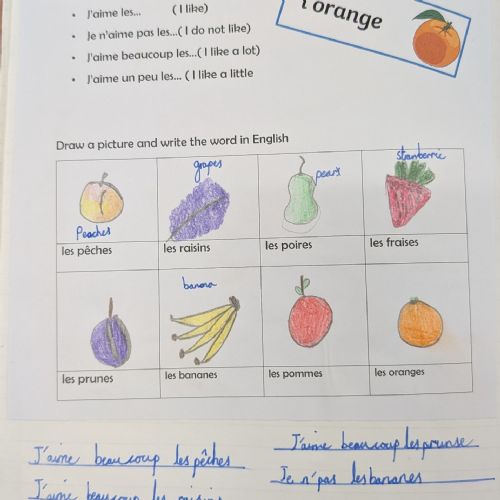 l'orange
• J'aime les... (I like)
• Je n'aime pas les...( I do not like)
• J'aime beaucoup les...( I like a lot)
• J'aime un peu les... ( I like a little
Draw a picture and write the word in English
Peaches
les pêches
grapes
les raisins
pears
les poires
strawberrie
les fraises
les prunes
banana
les bananes
les pommes
les oranges
J'aime beaucoup les pêches
J'aime beaucoup les raisins
J'aime beaucoup les prunse
Je n'pas les bananes